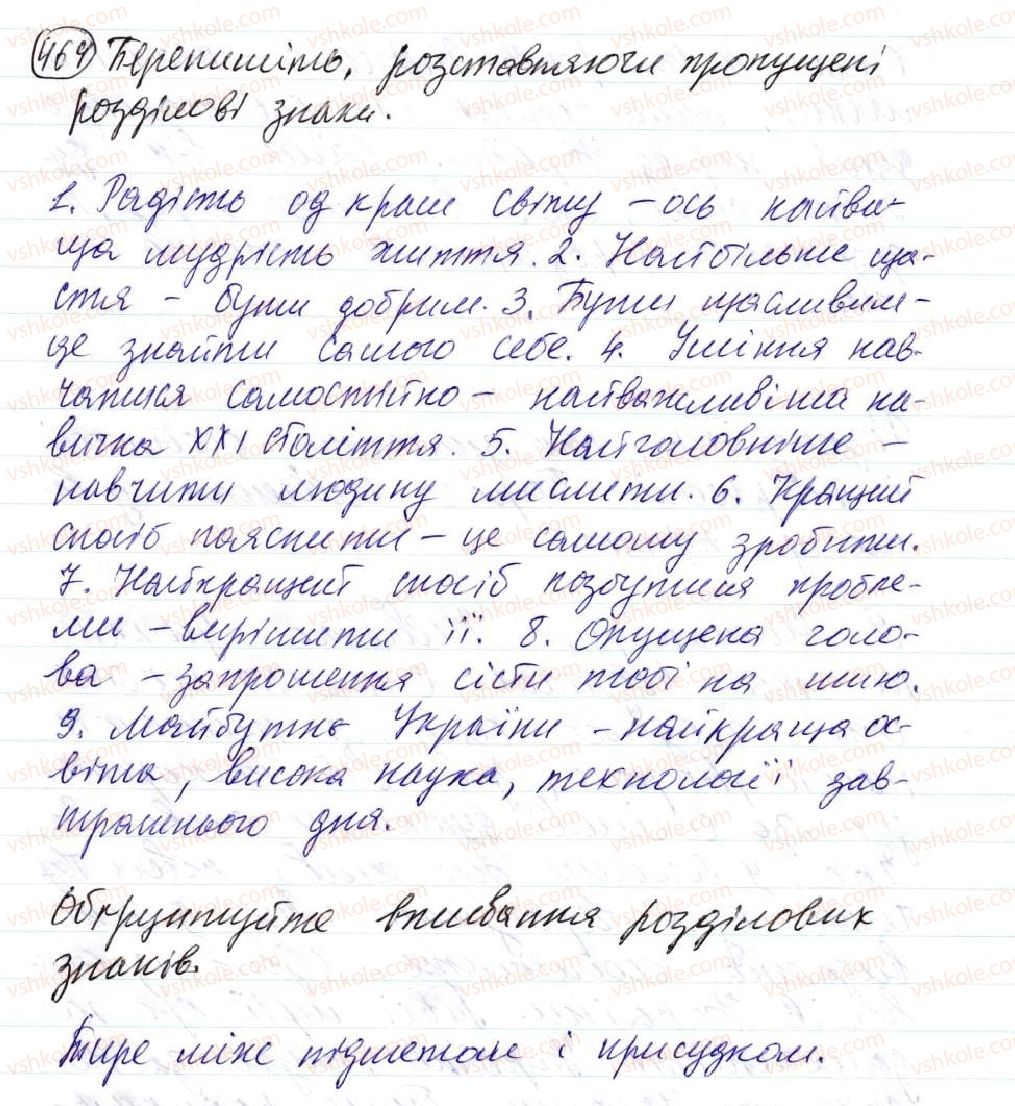 469 Перепишіть, розставляючи пропущені
розділові знаки.
1. Радість од краси світу – ось найви-
ща мудрість життя. 2. Найбільше ща-
стя – бути добрим. 3. Бути щасливим –
це знайти самого себе. 4. Уміння нав-
чатися самостійно – найважливіша на-
вичка XXI століття. 5. Найголовніше –
навчити людину мислити. 6. Кращий
спосіб пояснити – це самому зробити.
7. Найкращий спосіб позбутися пробле-
ми – вирішити її. 8. Опущена голо-
ва – запрошення сісти тобі на шию.
9. Майбутнє України – найкраща ос-
віта, висока наука, технології зав-
трашнього дня.
Обґрунтуйте вживання розділових
знаків.
Тире між підметом і присудком.